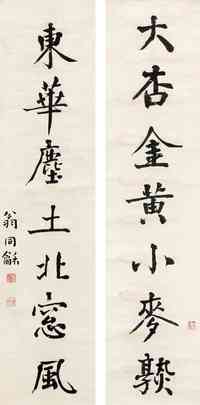 大杏金黄小麥熟
東華塵土北窓風
翁同龢